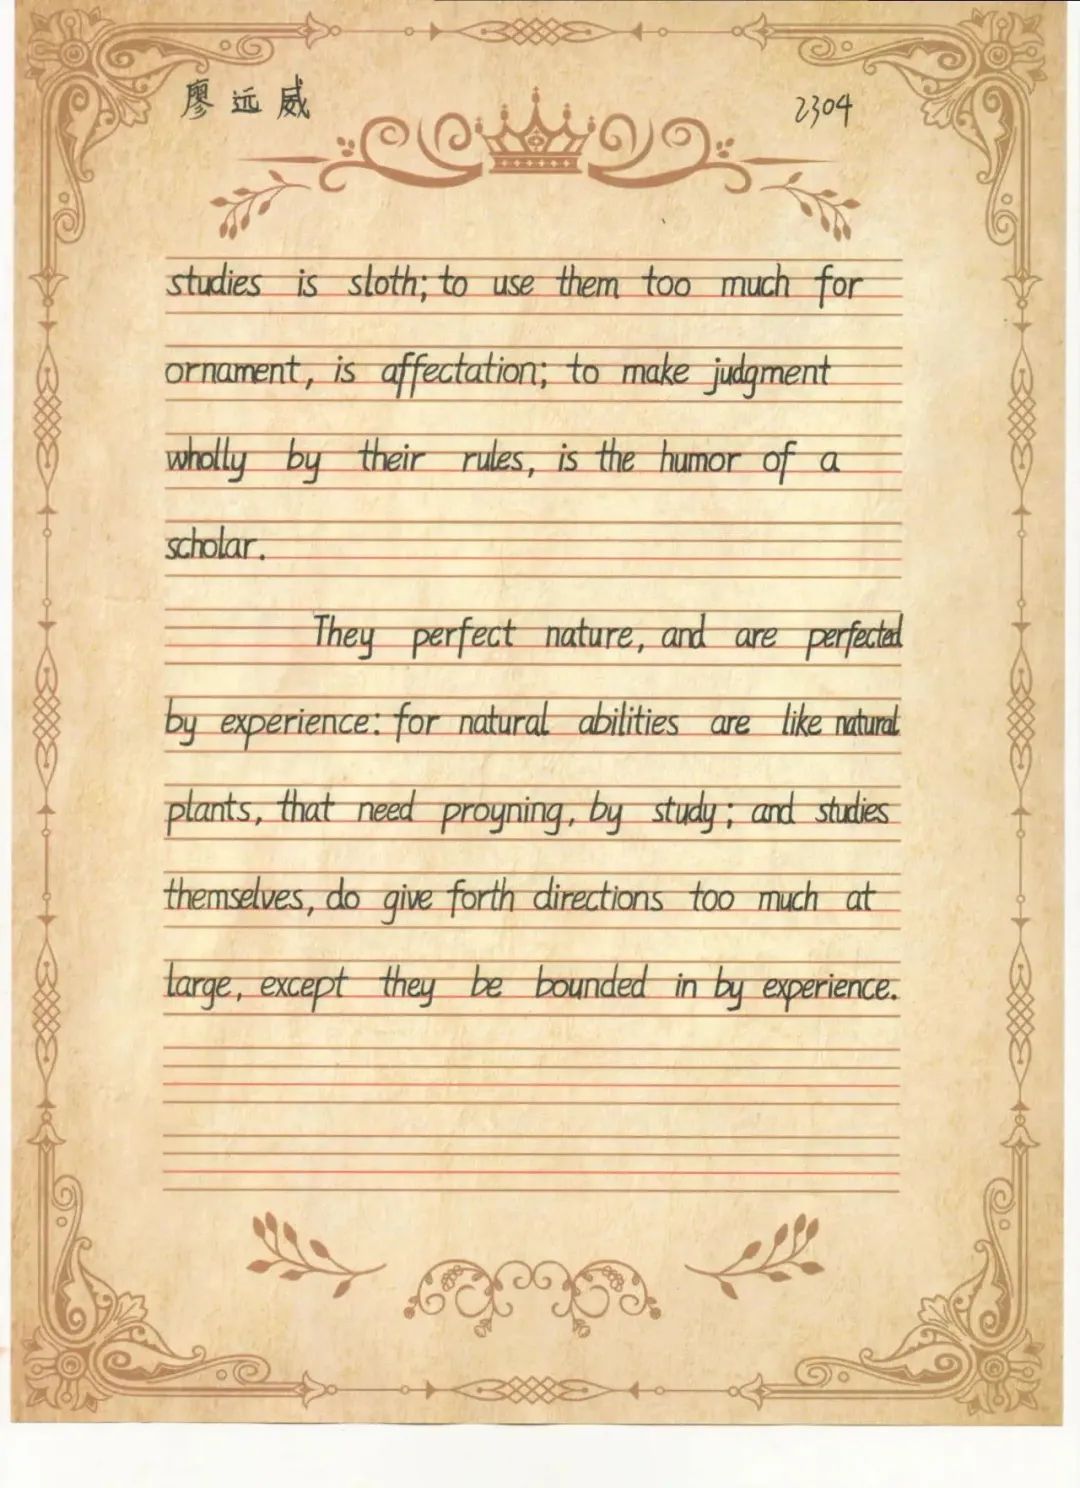 廖远威 2304
studies is sloth; to use them too much for
ornament, is affectation; to make judgment
wholly by their rules, is the humor of a
scholar.
They perfect nature, and are perfected
by experience: for natural abilities are like natural
plants, that need proyning, by study; and studies
themselves, do give forth directions too much at
large, except they be bounded in by experience.